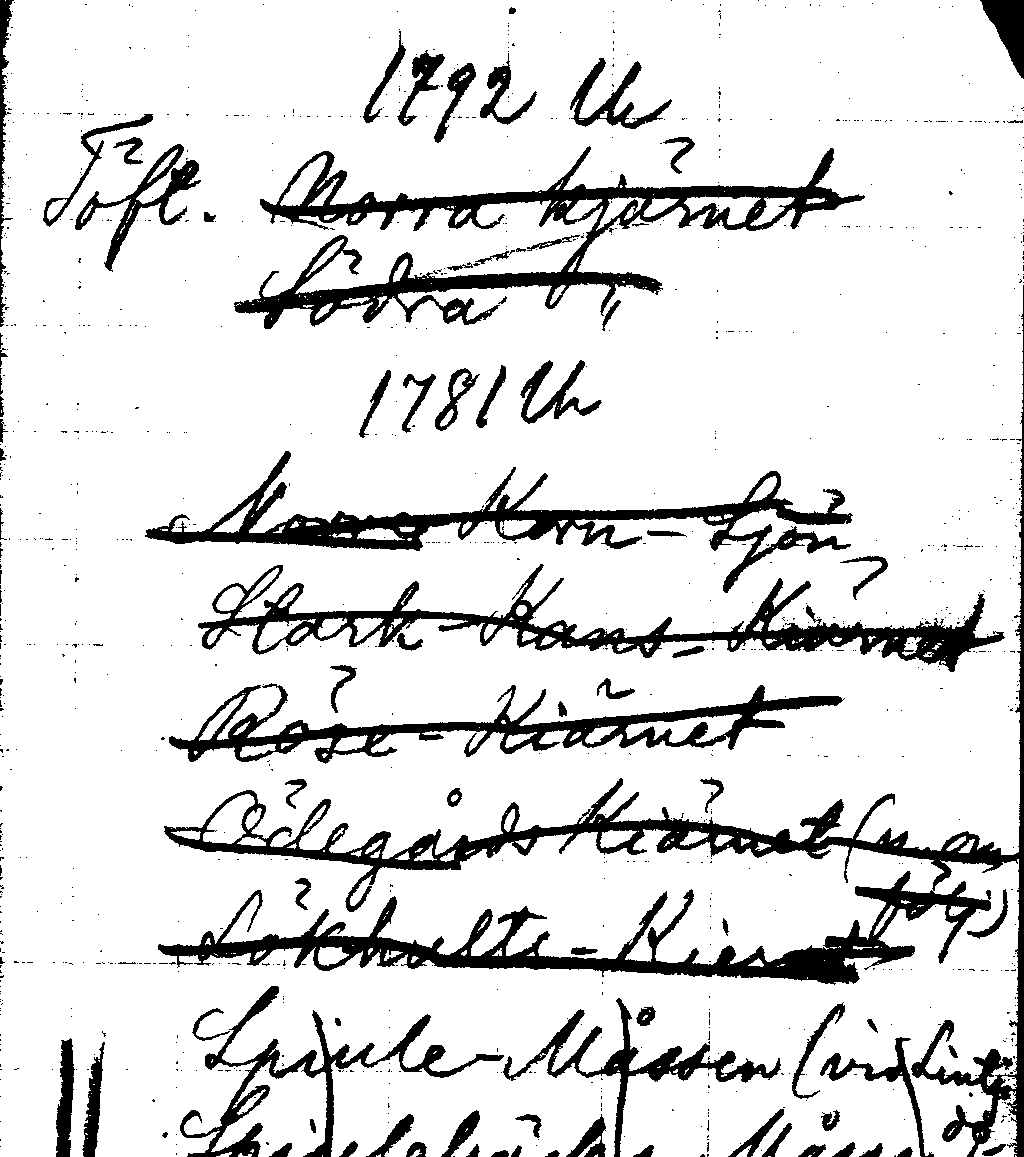 1792 Uh
Töft. Norra kjärnet
Södra "
1781 Uh
Norra Korn-Sjön
Stark-Kans-Kiärnet
Röse-Kiärnet
Ödegårds Kiärnet (n. om
följ)
Lökhults-Kier
Spinle-Måssen (vid
Måss